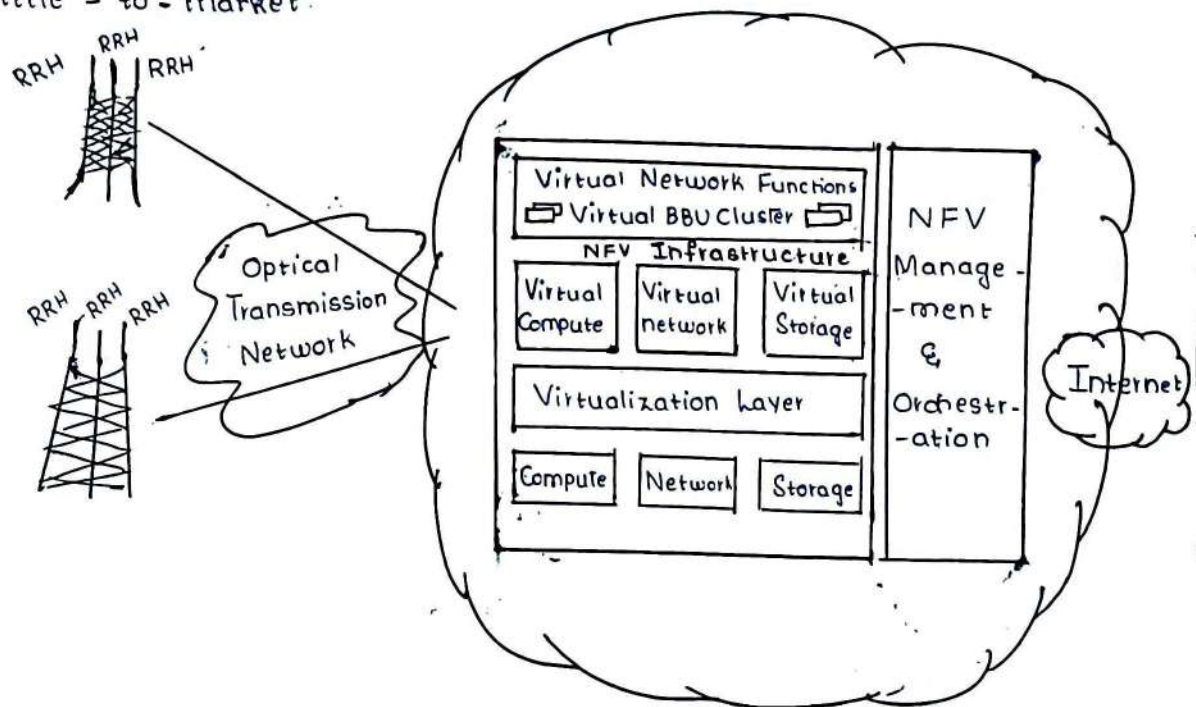 time - to - market.
RRH
RRH
RRH
RRH
RRH
RRH
Optical
Transmission
Network
Virtual Network Functions
Virtual BBU Cluster
NFV Infrastructure
Virtual
Compute
Virtual
network
Virtual
Storage
Virtualization Layer
Compute
Network
Storage
NFV
Manage -
-ment
&
Orchestr-
-ation
Internet